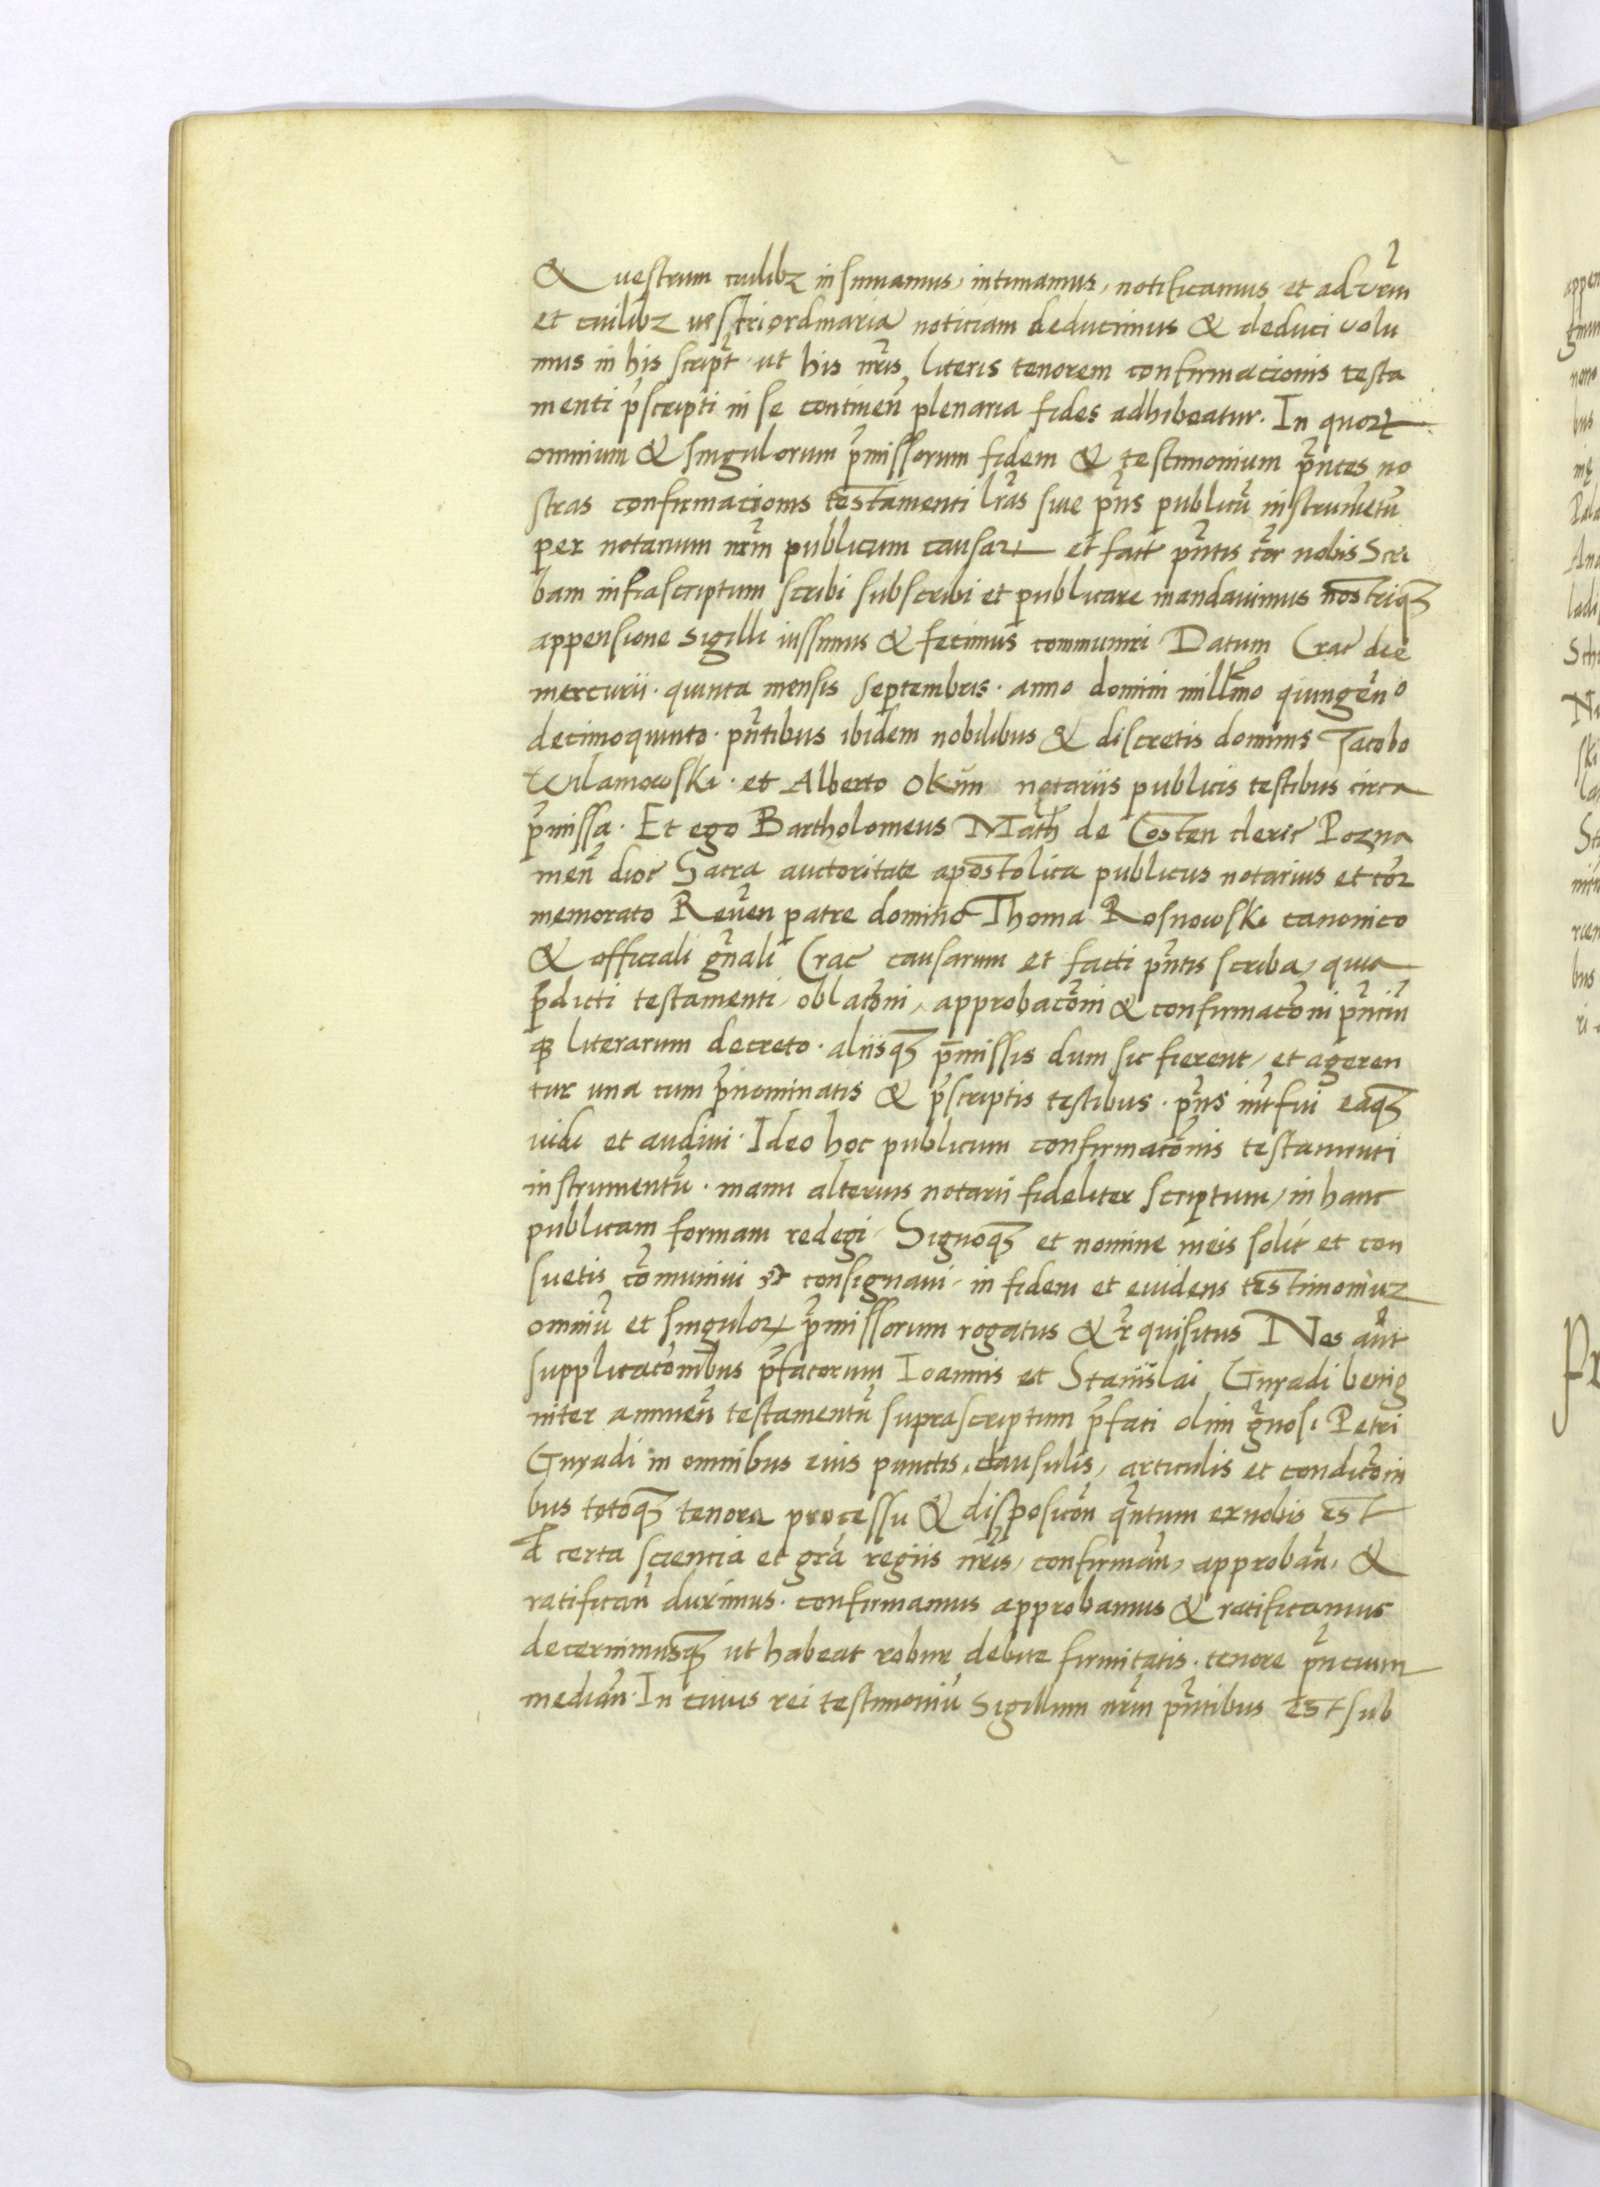 & vestrum cuilibz insinuamus, intimamus, notificamus et ad vr̃m
et cuilibz vestri ordinaria noticiam deducimus & deduci volu
mus in his script̃ ut his nr̃is literis tenorem confirmacionis testa
menti p̃scripti in se continen̄ plenaria fides adhibeatur. In quoꝝ
omnium & singulorum p̃missorum fidem & testimonium p̃ntes no
stras confirmacionis testamenti lr̃as siue p̃ns publicū instrumētū
per notarium nr̃m publicum causaꝝ et fact̃ p̃ntis cor̃ nobis Scri
bam infrascriptum scribi subscribi et publicare mandauimus nostriqꝫ
appensione sigilli iussimus & fecimus communiri Datum Crac̃ die
mercurii. quinta mensis septembris. anno domini mill̃mo quingen̄o
decimoquinto. p̃ntibus ibidem nobilibus & discretis dominis Jacobo
Wilamowski. et Alberto Okun̄ notariis publicis testibus circa
p̃missa. Et ego Bartholomeus Math̃ de Costen cleric̃ Pozna
nien̄ dioc̃ Sacra auctoritate apostolica publicus notarius et cor̃
memorato Reueñ patre domino Thoma Rosnowski canonico
& officiali gñali Crac̃ causarum et facti p̃ntis scriba, quia
p̃dicti testamenti, oblac̃oni, approbac̃oni & confirmac̃oni p̃nciū
qꝫ literarum decreto. aliisqꝫ p̃missis dum sic fierent, et ageren
tur una cum p̃nominatis & p̃scriptis testibus. p̃ns int̃fui eaqꝫ
uidi et audiui. Ideo hoc publicum confirmac̃onis testamenti
instrumentū. manu alterius notarii fideliter scriptum, in hanc
publicam formam redegi, Signoqꝫ et nomine meis solit̃ et con
suetis com̃uniui et consignaui, in fidem et euidens testimoniuz
omniū et singuloꝝ p̃missorum rogatus & r̃quisitus Nos aũt
supplicac̃onibus p̃fatorum Ioannis et Stanislai Gnyadi benig
niter annuen̄ testamentū suprascriptum p̃fati olim g̃nosi Petri
Gnyadi in omnibus eius punctis, clausulis, articulis et condic̃oni
bus totoqꝫ tenore processu & disposic̃on q̃ntum ex nobis est
de certa sciencia et grã regiis nr̃is, confirman̄, approban̄, &
ratifican̄ duximus. confirmamus approbamus & ratificamus
decernimusqꝫ ut habeat robur debite firmitatis. tenore p̃ncium
median̄. In cuius rei testimoniū Sigillum nr̃m p̃ntibus est sub